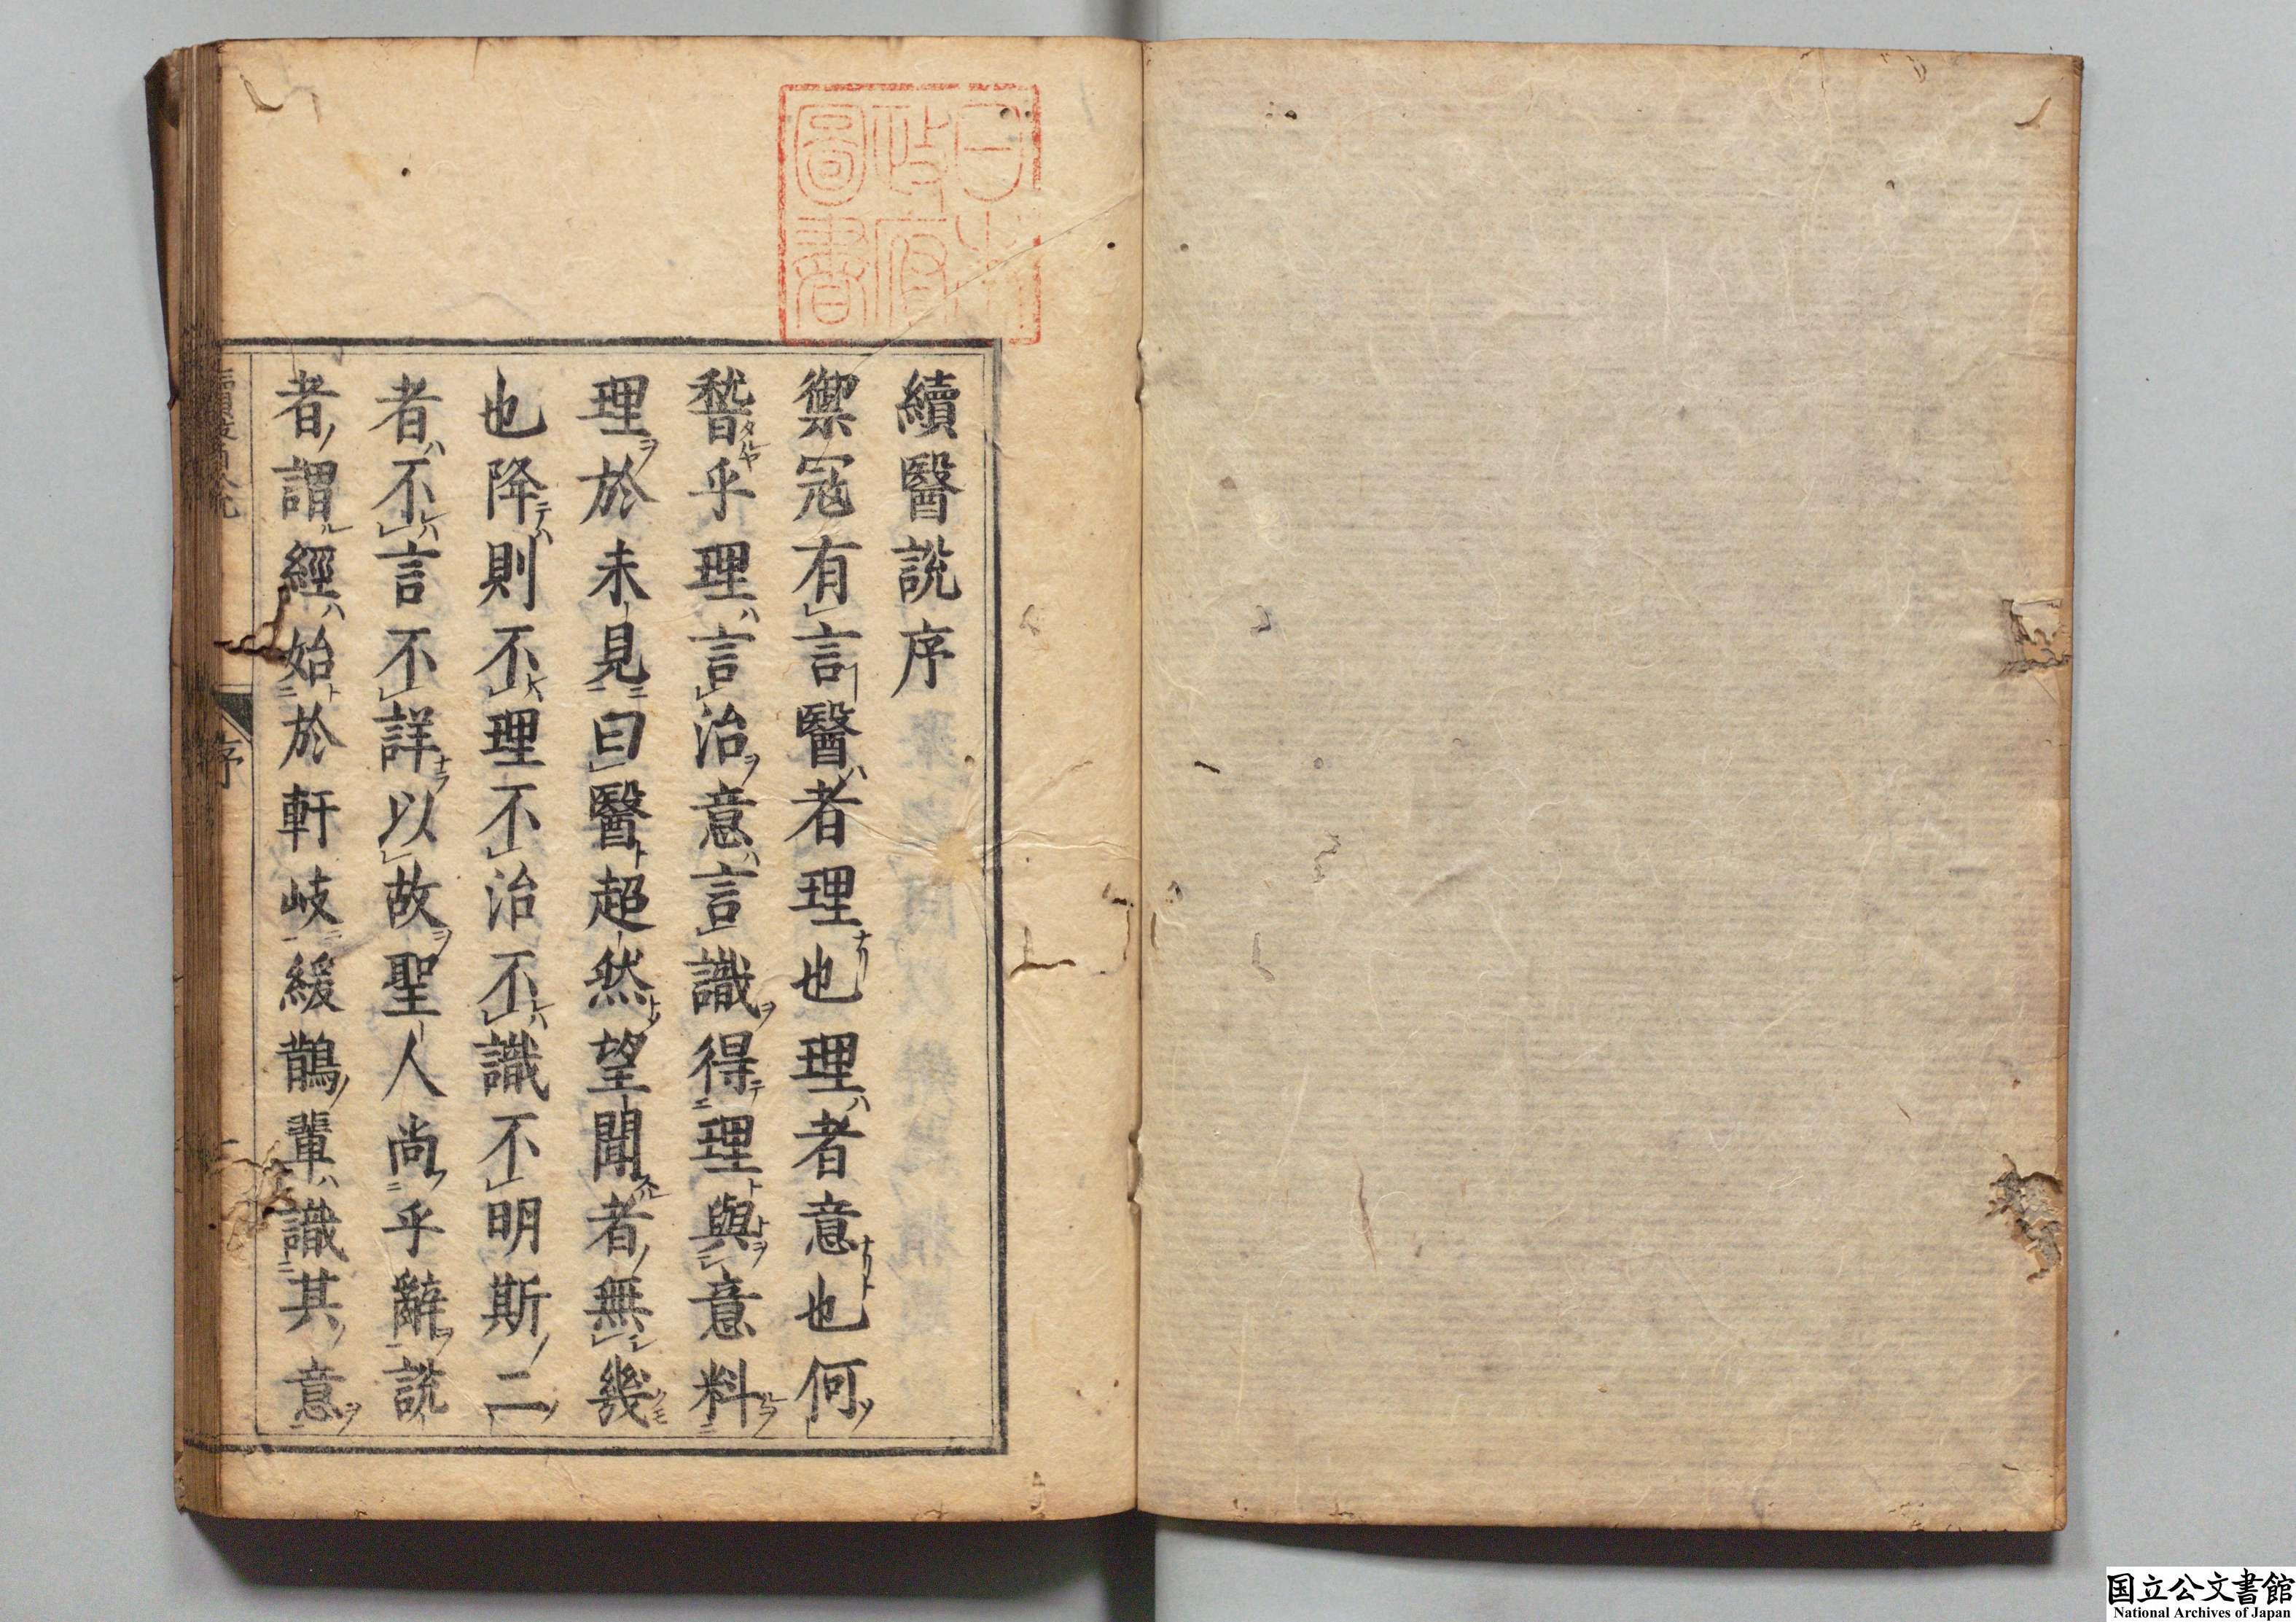 續醫說序
禦冠有言醫者理也理者意也何
嵇乎理言治意言識得理與意料
理於未見曰醫超然望聞者無幾
也降則不理不治不識不明斯二
者不言不詳以故聖人尚乎辭說
者謂經始於軒岐緩鵲輩識其意
序
日本
政府
圖書
国立公文書館
National Archives of Japan